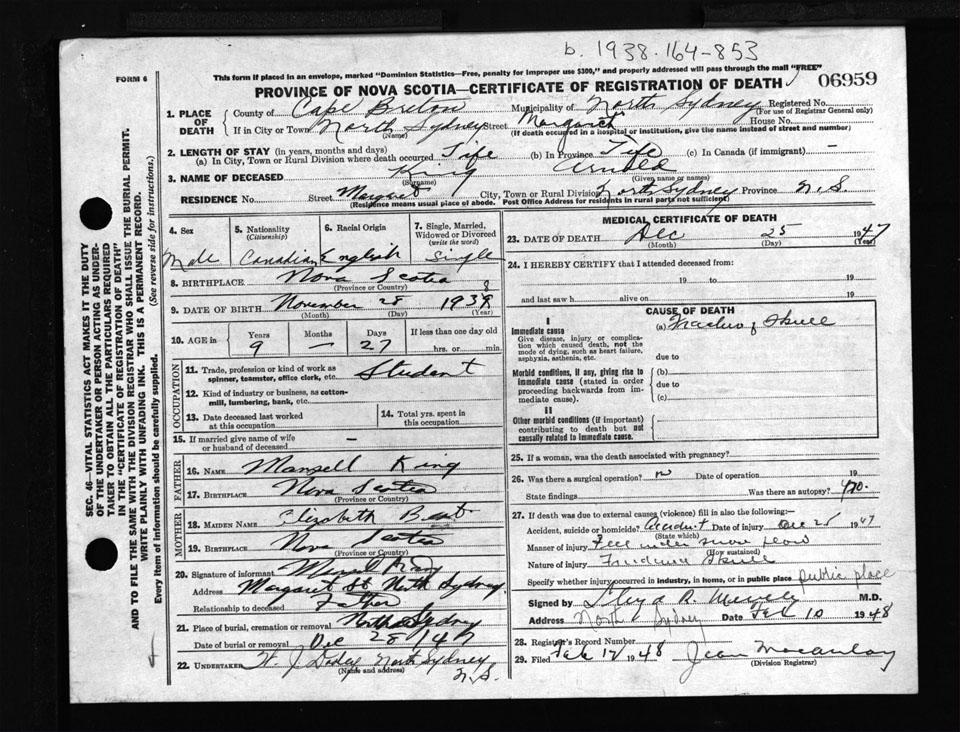 b. 1938-164-853
FORM 6
This form if placed in an envelope, marked "Dominion Statistics—Free, penalty for improper use $300," and properly addressed will pass through the mail "FREE"
PROVINCE OF NOVA SCOTIA—CERTIFICATE OF REGISTRATION OF DEATH
06959
1. PLACE OF DEATH
County of Cape Breton Municipality of North Sydney Registered No.
(For use of Registrar General only)
If in City or Town North Sydney Street Margaret House No.
(Name) (If death occurred in a hospital or institution, give the name instead of street and number)
2. LENGTH OF STAY (in years, months and days)
(a) In City, Town or Rural Division where death occurred Life (b) In Province Life (c) In Canada (if immigrant) —
3. NAME OF DECEASED King
(Surname) (Given name or names)
RESIDENCE No. Street Margaret City, Town or Rural Division North Sydney Province N.S.
(Residence means usual place of abode. Post Office Address for residents in rural parts not sufficient)
4. Sex
Male
5. Nationality
(Citizenship)
Canadian
6. Racial Origin
English
7. Single, Married, Widowed or Divorced
(write the word)
Single
8. BIRTHPLACE Nova Scotia
(Province or Country)
9. DATE OF BIRTH November 28 1938
(Month) (Day) (Year)
10. AGE in Years Months Days If less than one day old
9 — 27 hrs. or min.
OCCUPATION
11. Trade, profession or kind of work as spinner, teamster, office clerk, etc. Student
12. Kind of industry or business, as cotton-mill, lumbering, bank, etc.
13. Date deceased last worked at this occupation
14. Total yrs. spent in this occupation
15. If married give name of wife or husband of deceased —
FATHER
16. NAME Mansell King
17. BIRTHPLACE Nova Scotia
(Province or Country)
MOTHER
18. MAIDEN NAME Elizabeth
19. BIRTHPLACE Nova Scotia
(Province or Country)
20. Signature of informant King
Address Margaret St North Sydney
Relationship to deceased Father
21. Place of burial, cremation or removal North Sydney
Date of burial or removal Dec 28 1947
22. UNDERTAKER North Sydney N.S.
(Name and address)
MEDICAL CERTIFICATE OF DEATH
23. DATE OF DEATH Dec 25 1947
(Month) (Day) (Year)
24. I HEREBY CERTIFY that I attended deceased from:
19 to 19
and last saw h alive on 19
CAUSE OF DEATH
I
Immediate cause
(a) of Skull
Give disease, injury or complication which caused death, not the mode of dying, such as heart failure, asphyxia, asthenia, etc.
due to
Morbid conditions, if any, giving rise to immediate cause (stated in order proceeding backwards from immediate cause).
(b)
due to
(c)
II
Other morbid conditions (if important) contributing to death but not causally related to immediate cause.
25. If a woman, was the death associated with pregnancy?
26. Was there a surgical operation? no Date of operation 19
State findings Was there an autopsy? no.
27. If death was due to external causes (violence) fill in also the following:
Accident, suicide or homicide? Accident Date of injury Dec 25 1947
(State which)
Manner of injury Fell under snow plow
(How sustained)
Nature of injury Skull
Specify whether injury occurred in industry, in home, or in public place public place
Signed by M.D.
Address North Sydney Date Feb 10 1948
28. Registrar's Record Number
29. Filed Feb 1948 Jean
(Division Registrar)
SEC. 46—VITAL STATISTICS ACT MAKES IT THE DUTY
OF THE UNDERTAKER OR PERSON ACTING AS UNDER-
TAKER TO OBTAIN ALL THE PARTICULARS REQUIRED
IN THE "CERTIFICATE OF REGISTRATION OF DEATH"
AND TO FILE THE SAME WITH THE DIVISION REGISTRAR WHO SHALL ISSUE THE BURIAL PERMIT.
WRITE PLAINLY WITH UNFADING INK. THIS IS A PERMANENT RECORD.
Every item of information should be carefully supplied. (See reverse side for instructions.)